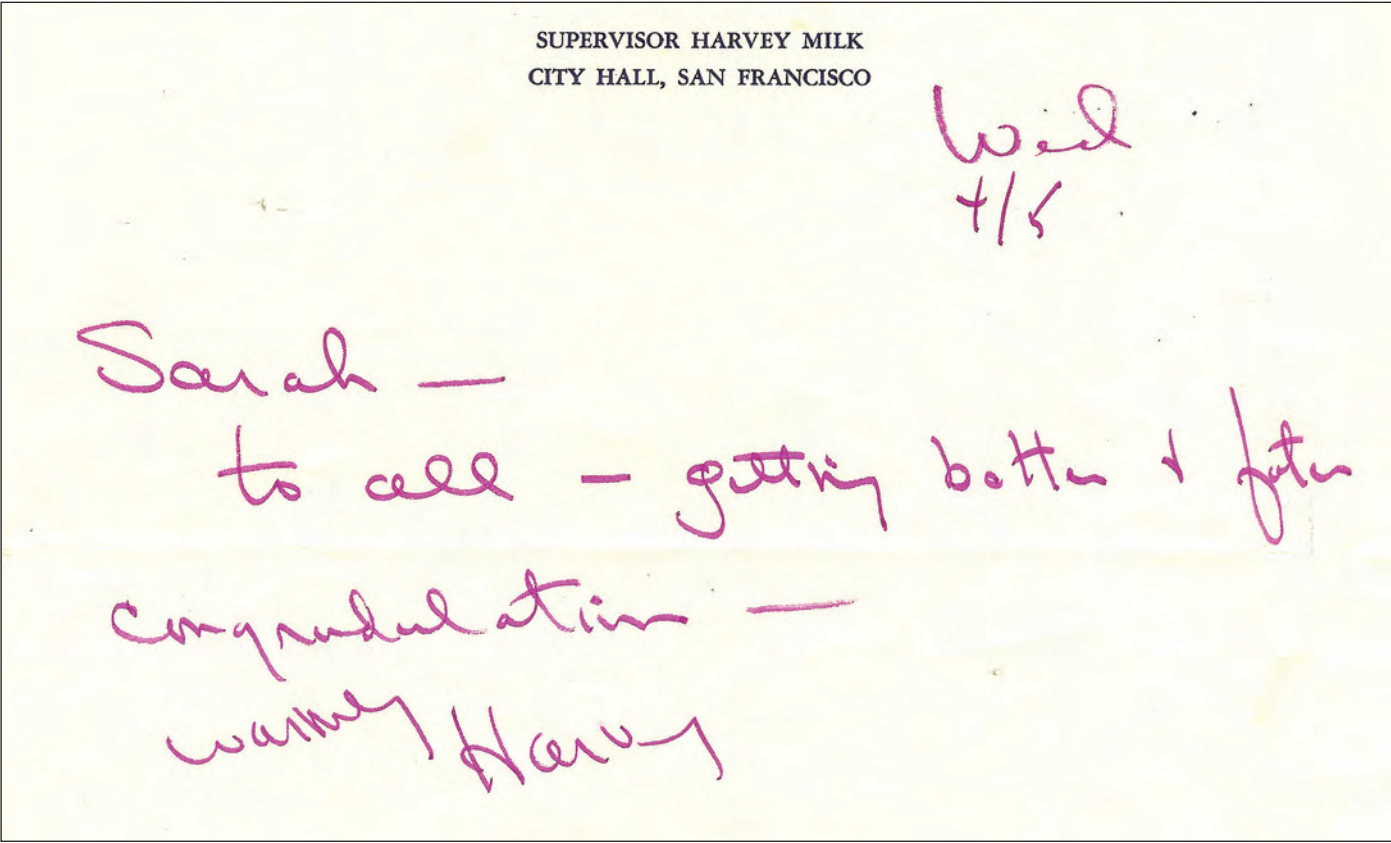 SUPERVISOR HARVEY MILK
CITY HALL, SAN FRANCISCO
Wed
4/5
Sarah —
to all — getting better &
congradulation —
warmly Harvey